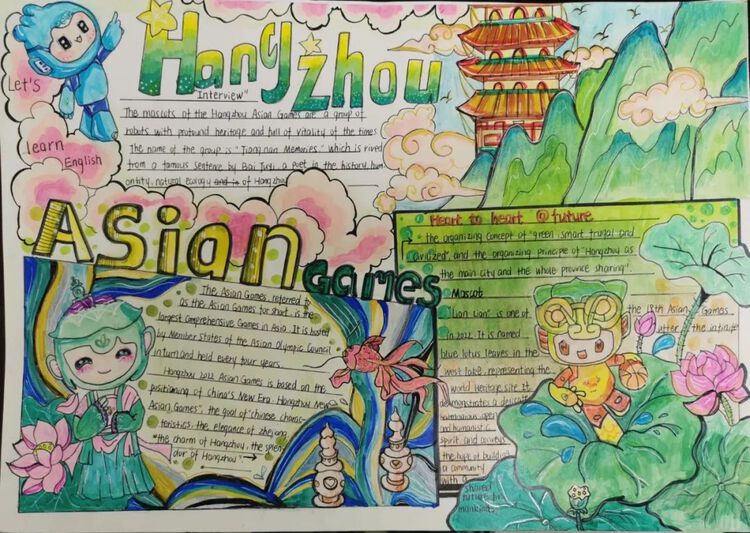 Let's
learn
English
Hangzhou
"Interview"
The mascots of the Hangzhou Asian Games are a group of
robots with profound heritage and full of vitality of the times.
The name of the group is "Jiang nan Memories." which is rived
from a famous sentence by Bai Juyi, a poet in the history, hum
antity, natural ecology and in of Hangzhou
ASian
Games
The Asian Games, referred to
as the Asian Games for short, is the
largest Comprehensive Games in Asia. It is hosted
by Member States of the Asian Olympic Council
in turn and held every four years.
Hangzhou 2022 Asian Games is based on the
positioning of China's New Era. Hangzhou New
Asian Games", the goal of "chinese charac-
teristics, the elegance of zhejiang,
"the charm of Hangzhou, the splen-
dor of Hangzhou"
Heart to heart @future
the organizing concept of "green, smart frugal and
civilized", and the organizing principle of "Hangzhou as
the main city and the whole province sharing".
Mascot
"Lian Lian" is one of the 19th Asian Games
in 2022. It is named after the infinite
blue lotus leaves in the
west lake, representing the
world Heritage site It
demonstrates a delicate
harmonious open
and humanistic
spirit and conveys
the hope of building
a community
with a
shared
future for
mankind.